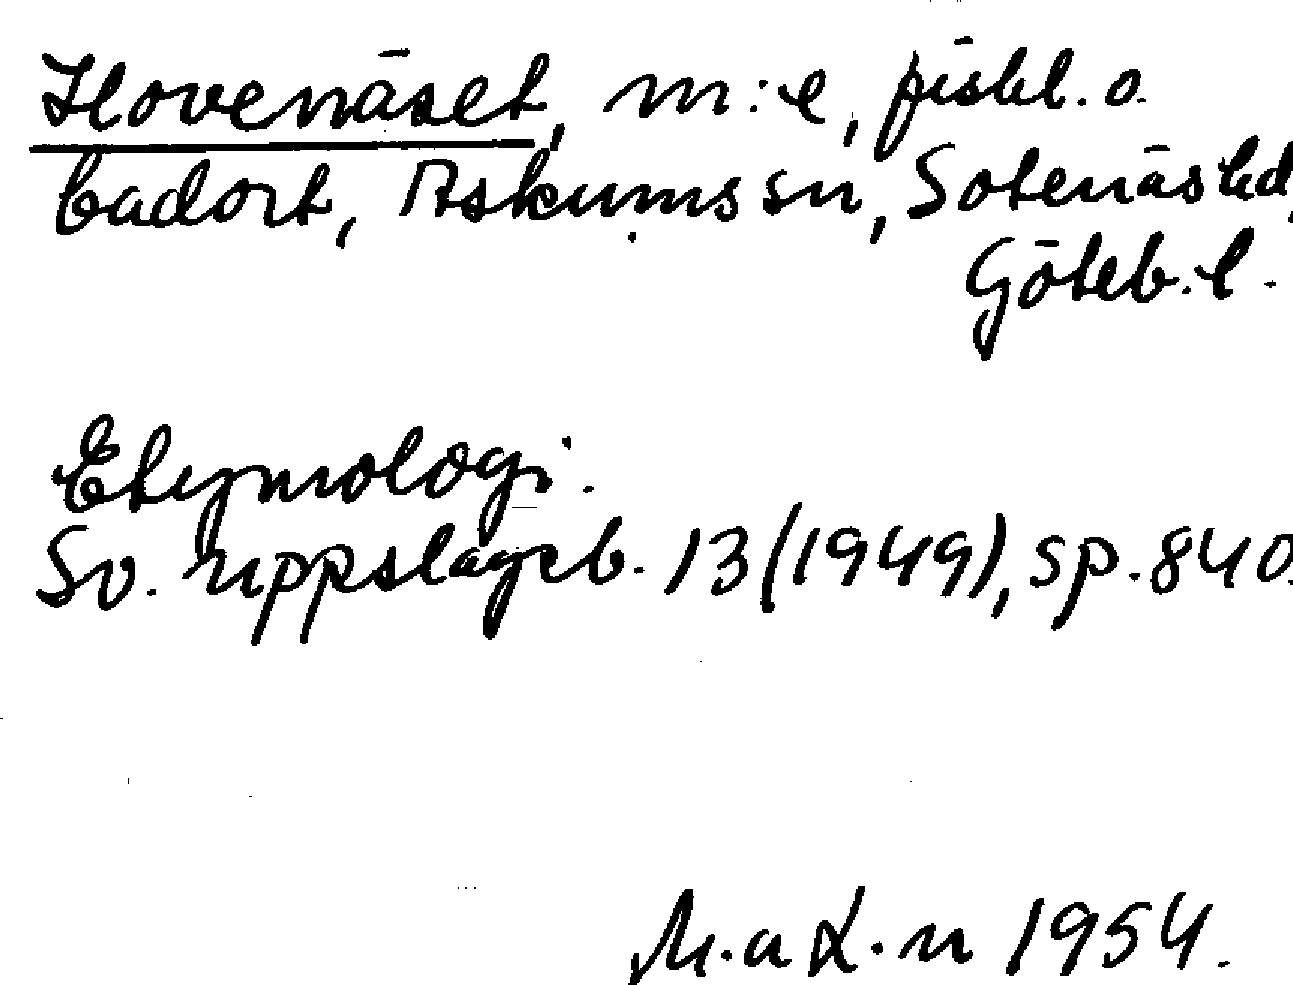 Hovenäset, m:e, fiskl. o.
badort, Askums sn, Sotenäs hd,
Göteb. l.
Etymologi.
Sv. uppslagsb. 13 (1949), sp. 840.
1954.